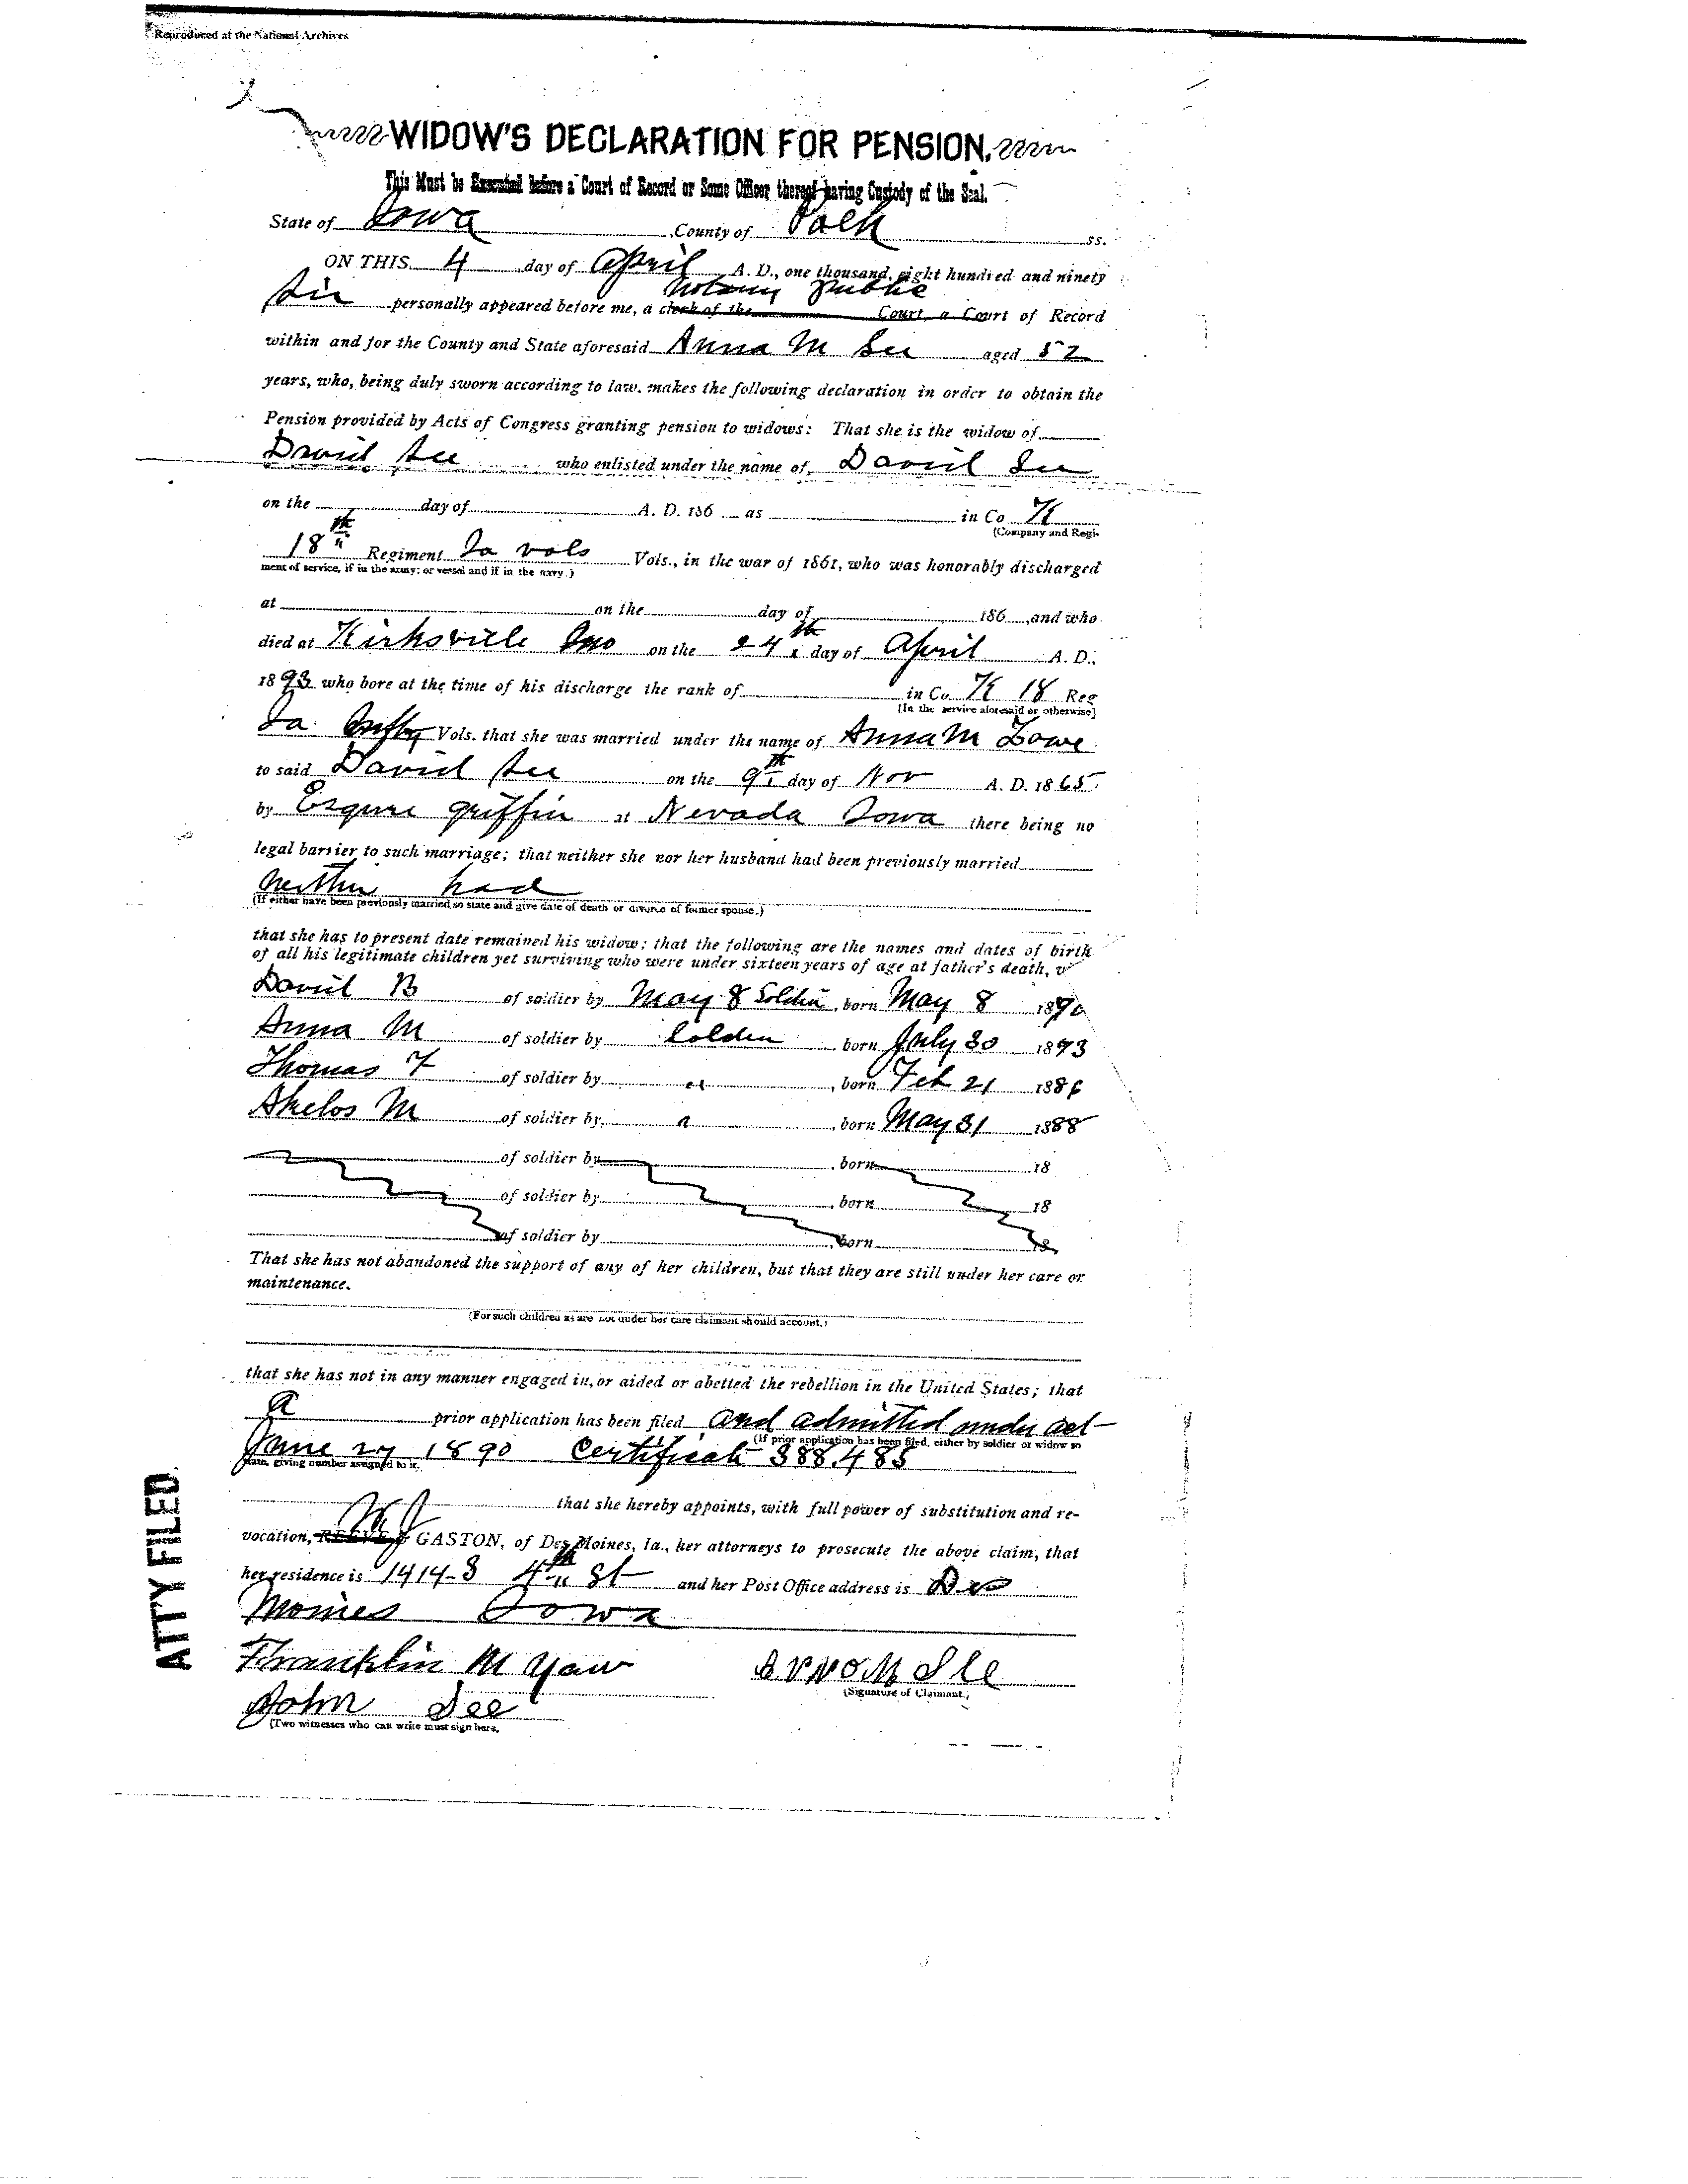 Reproduced at the National Archives
WIDOW'S DECLARATION FOR PENSION.
This Must be Executed before a Court of Record or Some Officer thereof having Custody of the Seal.
State of Iowa County of Polk ss.
ON THIS 4 day of April A. D., one thousand, eight hundred and ninety
Notary Public
six personally appeared before me, a clerk of the Court, a Court of Record
within and for the County and State aforesaid Anna M See aged 52
years, who, being duly sworn according to law, makes the following declaration in order to obtain the
Pension provided by Acts of Congress granting pension to widows: That she is the widow of
David See who enlisted under the name of David See
on the day of A. D. 186 as in Co K
(Company and Regi-
18th Regiment Ia vols Vols., in the war of 1861, who was honorably discharged
ment of service, if in the army; or vessel and if in the navy.)
at on the day of 186 , and who
died at Kirksville Mo on the 24th day of April A. D.,
1893 who bore at the time of his discharge the rank of in Co K 18 Reg
[In the service aforesaid or otherwise]
Ia Infty Vols. that she was married under the name of Anna M Lowe
to said David See on the 9th day of Nov A. D. 1865.
by Esqure Griffin at Nevada Iowa there being no
legal barrier to such marriage; that neither she nor her husband had been previously married
neither had
(If either have been previously married, so state and give date of death or divorce of former spouse.)
that she has to present date remained his widow; that the following are the names and dates of birth
of all his legitimate children yet surviving who were under sixteen years of age at father's death,
David B of soldier by May 8 Soldier, born May 8 1890
Anna M of soldier by Soldier born July 30 1893
Thomas F of soldier by , born Feb 21 1886
M of soldier by , born May 31 1888
of soldier by , born 18
of soldier by , born 18
of soldier by , born 18
That she has not abandoned the support of any of her children, but that they are still under her care or
maintenance.
(For such children as are not under her care claimant should account.)
that she has not in any manner engaged in, or aided or abetted the rebellion in the United States; that
a prior application has been filed and admitted under act
(If prior application has been filed, either by soldier or widow so
June 27 1890 Certificate 388.485
state, giving number assigned to it.
that she hereby appoints, with full power of substitution and re-
vocation, REEVE & GASTON, of Des Moines, Ia., her attorneys to prosecute the above claim, that
her residence is 1414-S 4th St and her Post Office address is Des
Moines Iowa
Franklin M Yaw
(Signature of Claimant.)
John See
(Two witnesses who can write must sign here.
ATTY FILED.